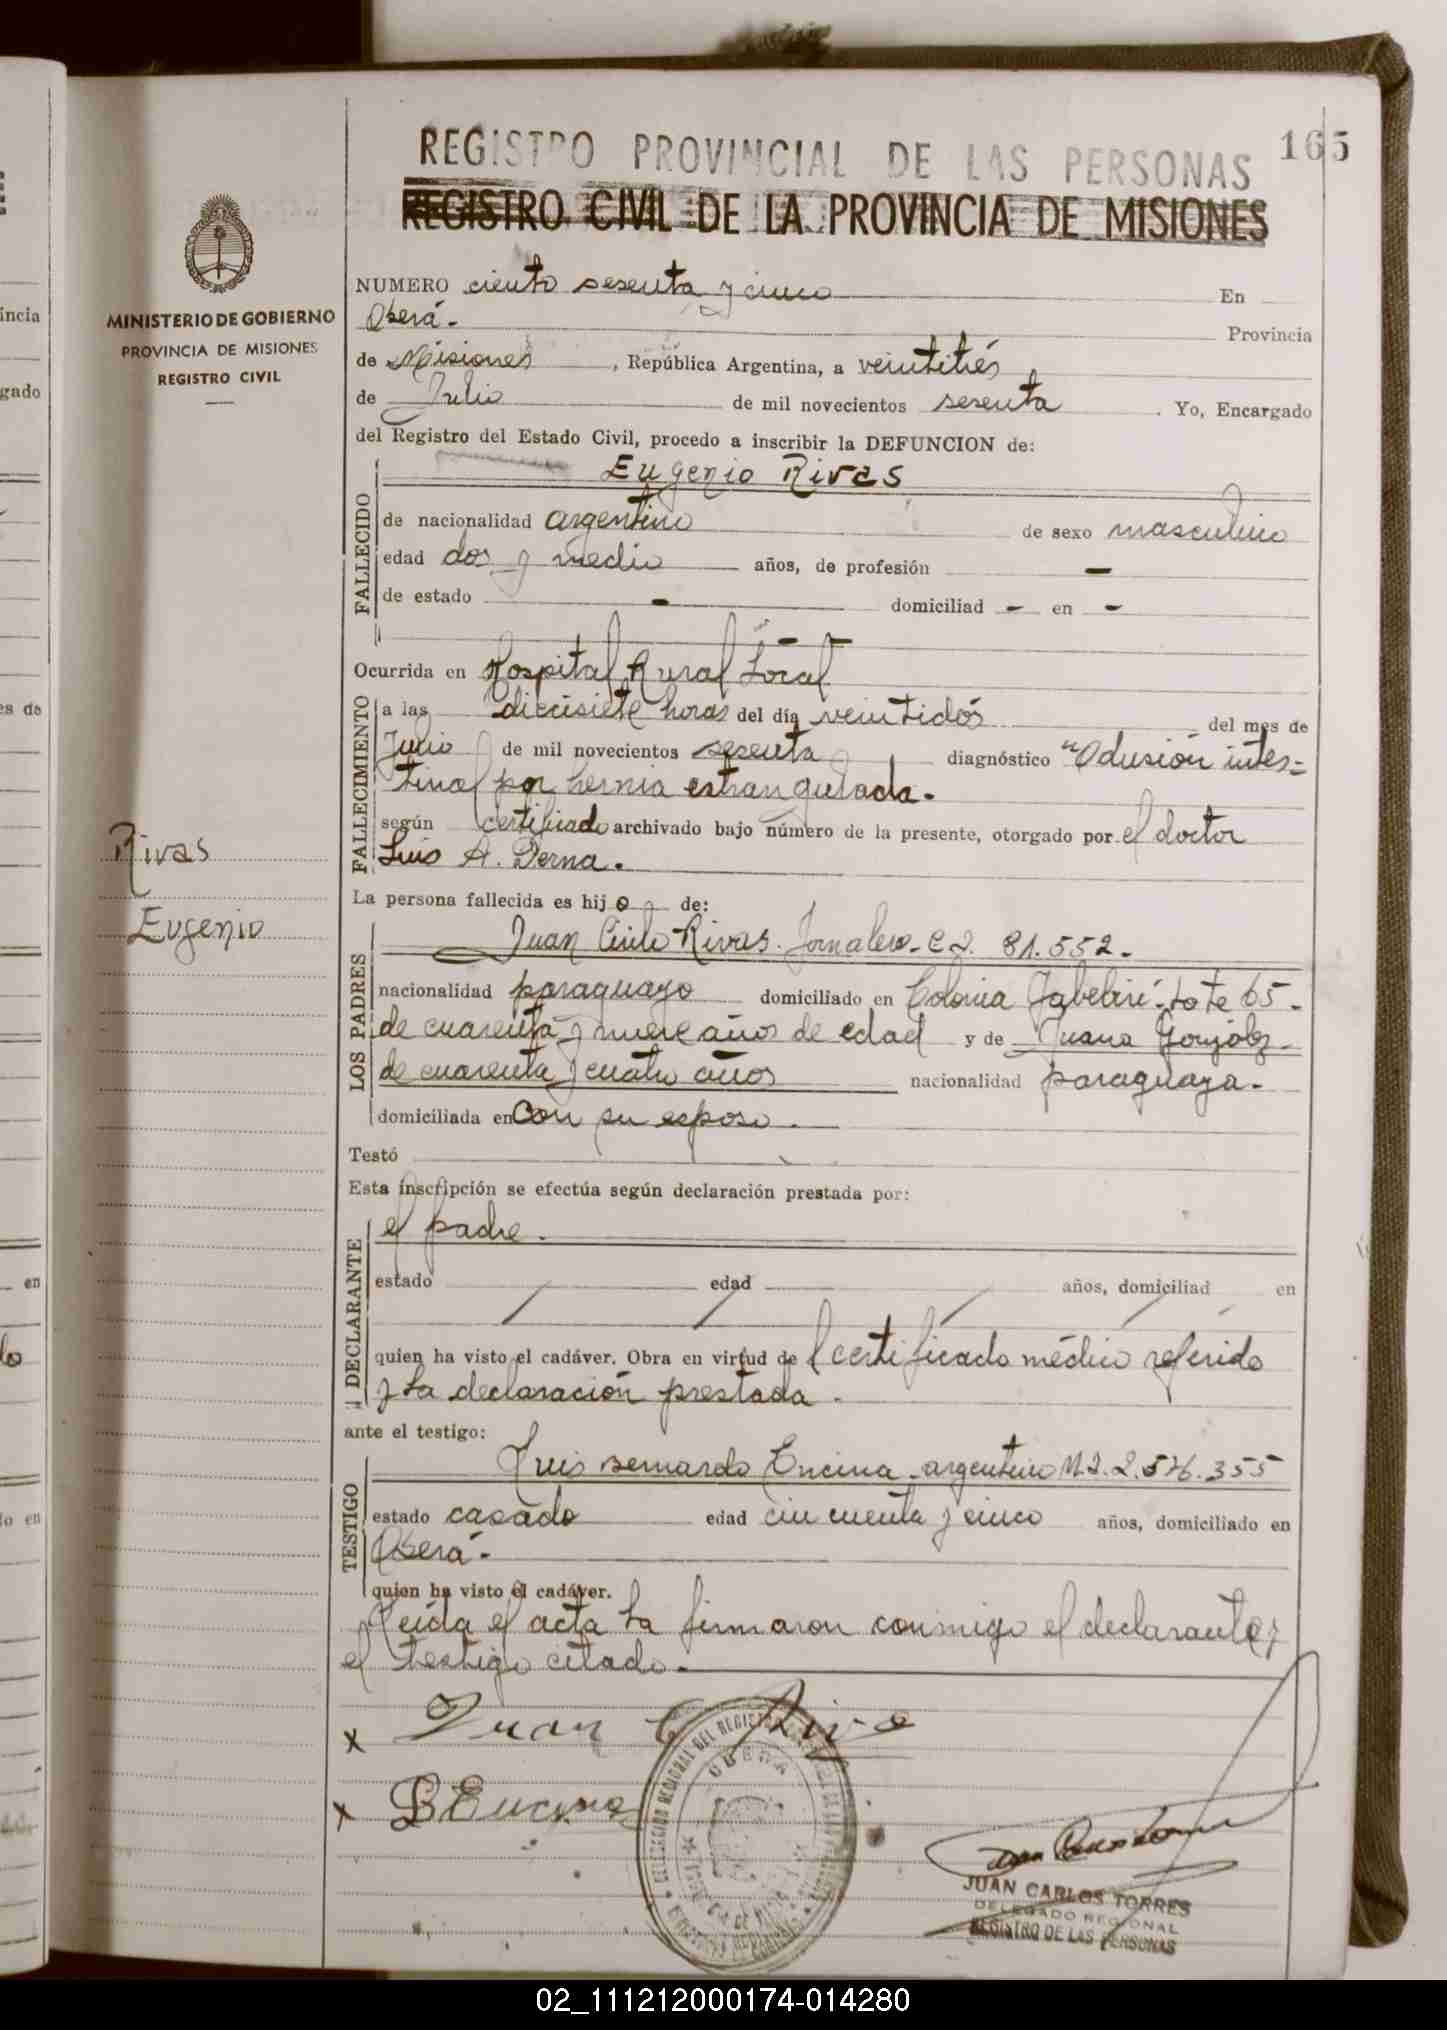 165
REGISTRO PROVINCIAL DE LAS PERSONAS
REGISTRO CIVIL DE LA PROVINCIA DE MISIONES
MINISTERIO DE GOBIERNO
PROVINCIA DE MISIONES
REGISTRO CIVIL
NUMERO ciento sesenta y cinco En
Oberá.- Provincia
de Misiones, República Argentina, a veintitrés
de Julio de mil novecientos sesenta. Yo, Encargado
del Registro del Estado Civil, procedo a inscribir la DEFUNCION de:
FALLECIDO
Eugenio Rivas
de nacionalidad argentino de sexo masculino
edad dos y medio años, de profesión -
de estado - domiciliad - en -
Ocurrida en Hospital Rural Local
FALLECIMIENTO
a las diecisiete horas del día veintidós del mes de
Julio de mil novecientos sesenta diagnóstico "Oclusión intes=
tinal por hernia estrangulada.
según certificado archivado bajo número de la presente, otorgado por el doctor
Luis A. Derna.
Rivas
Eugenio
La persona fallecida es hijo de:
LOS PADRES
Juan Cirilo Rivas. Jornalero- C.I. 81.552.
nacionalidad paraguayo domiciliado en Colonia Yabebiri- Lote 65-
de cuarenta y nueve años de edad y de Juana González-
de cuarenta y cuatro años nacionalidad paraguaya-
domiciliada en con su esposo.
Testó
Esta inscripción se efectúa según declaración prestada por:
DECLARANTE
el padre.
estado edad años, domiciliad en
quien ha visto el cadáver. Obra en virtud de l certificado médico referido
y la declaración prestada.
ante el testigo:
TESTIGO
Luis Bernardo Encina- argentino M.I. 2.576.355
estado casado edad cincuenta y cinco años, domiciliado en
Oberá-
quien ha visto el cadáver.
Leída el acta la firmaron conmigo el declarante y
el testigo citado.
x Juan C Riva
x B Encina
OBERA
JUAN CARLOS TORRES
DELEGADO REGIONAL
REGISTRO DE LAS PERSONAS
02_111212000174-014280